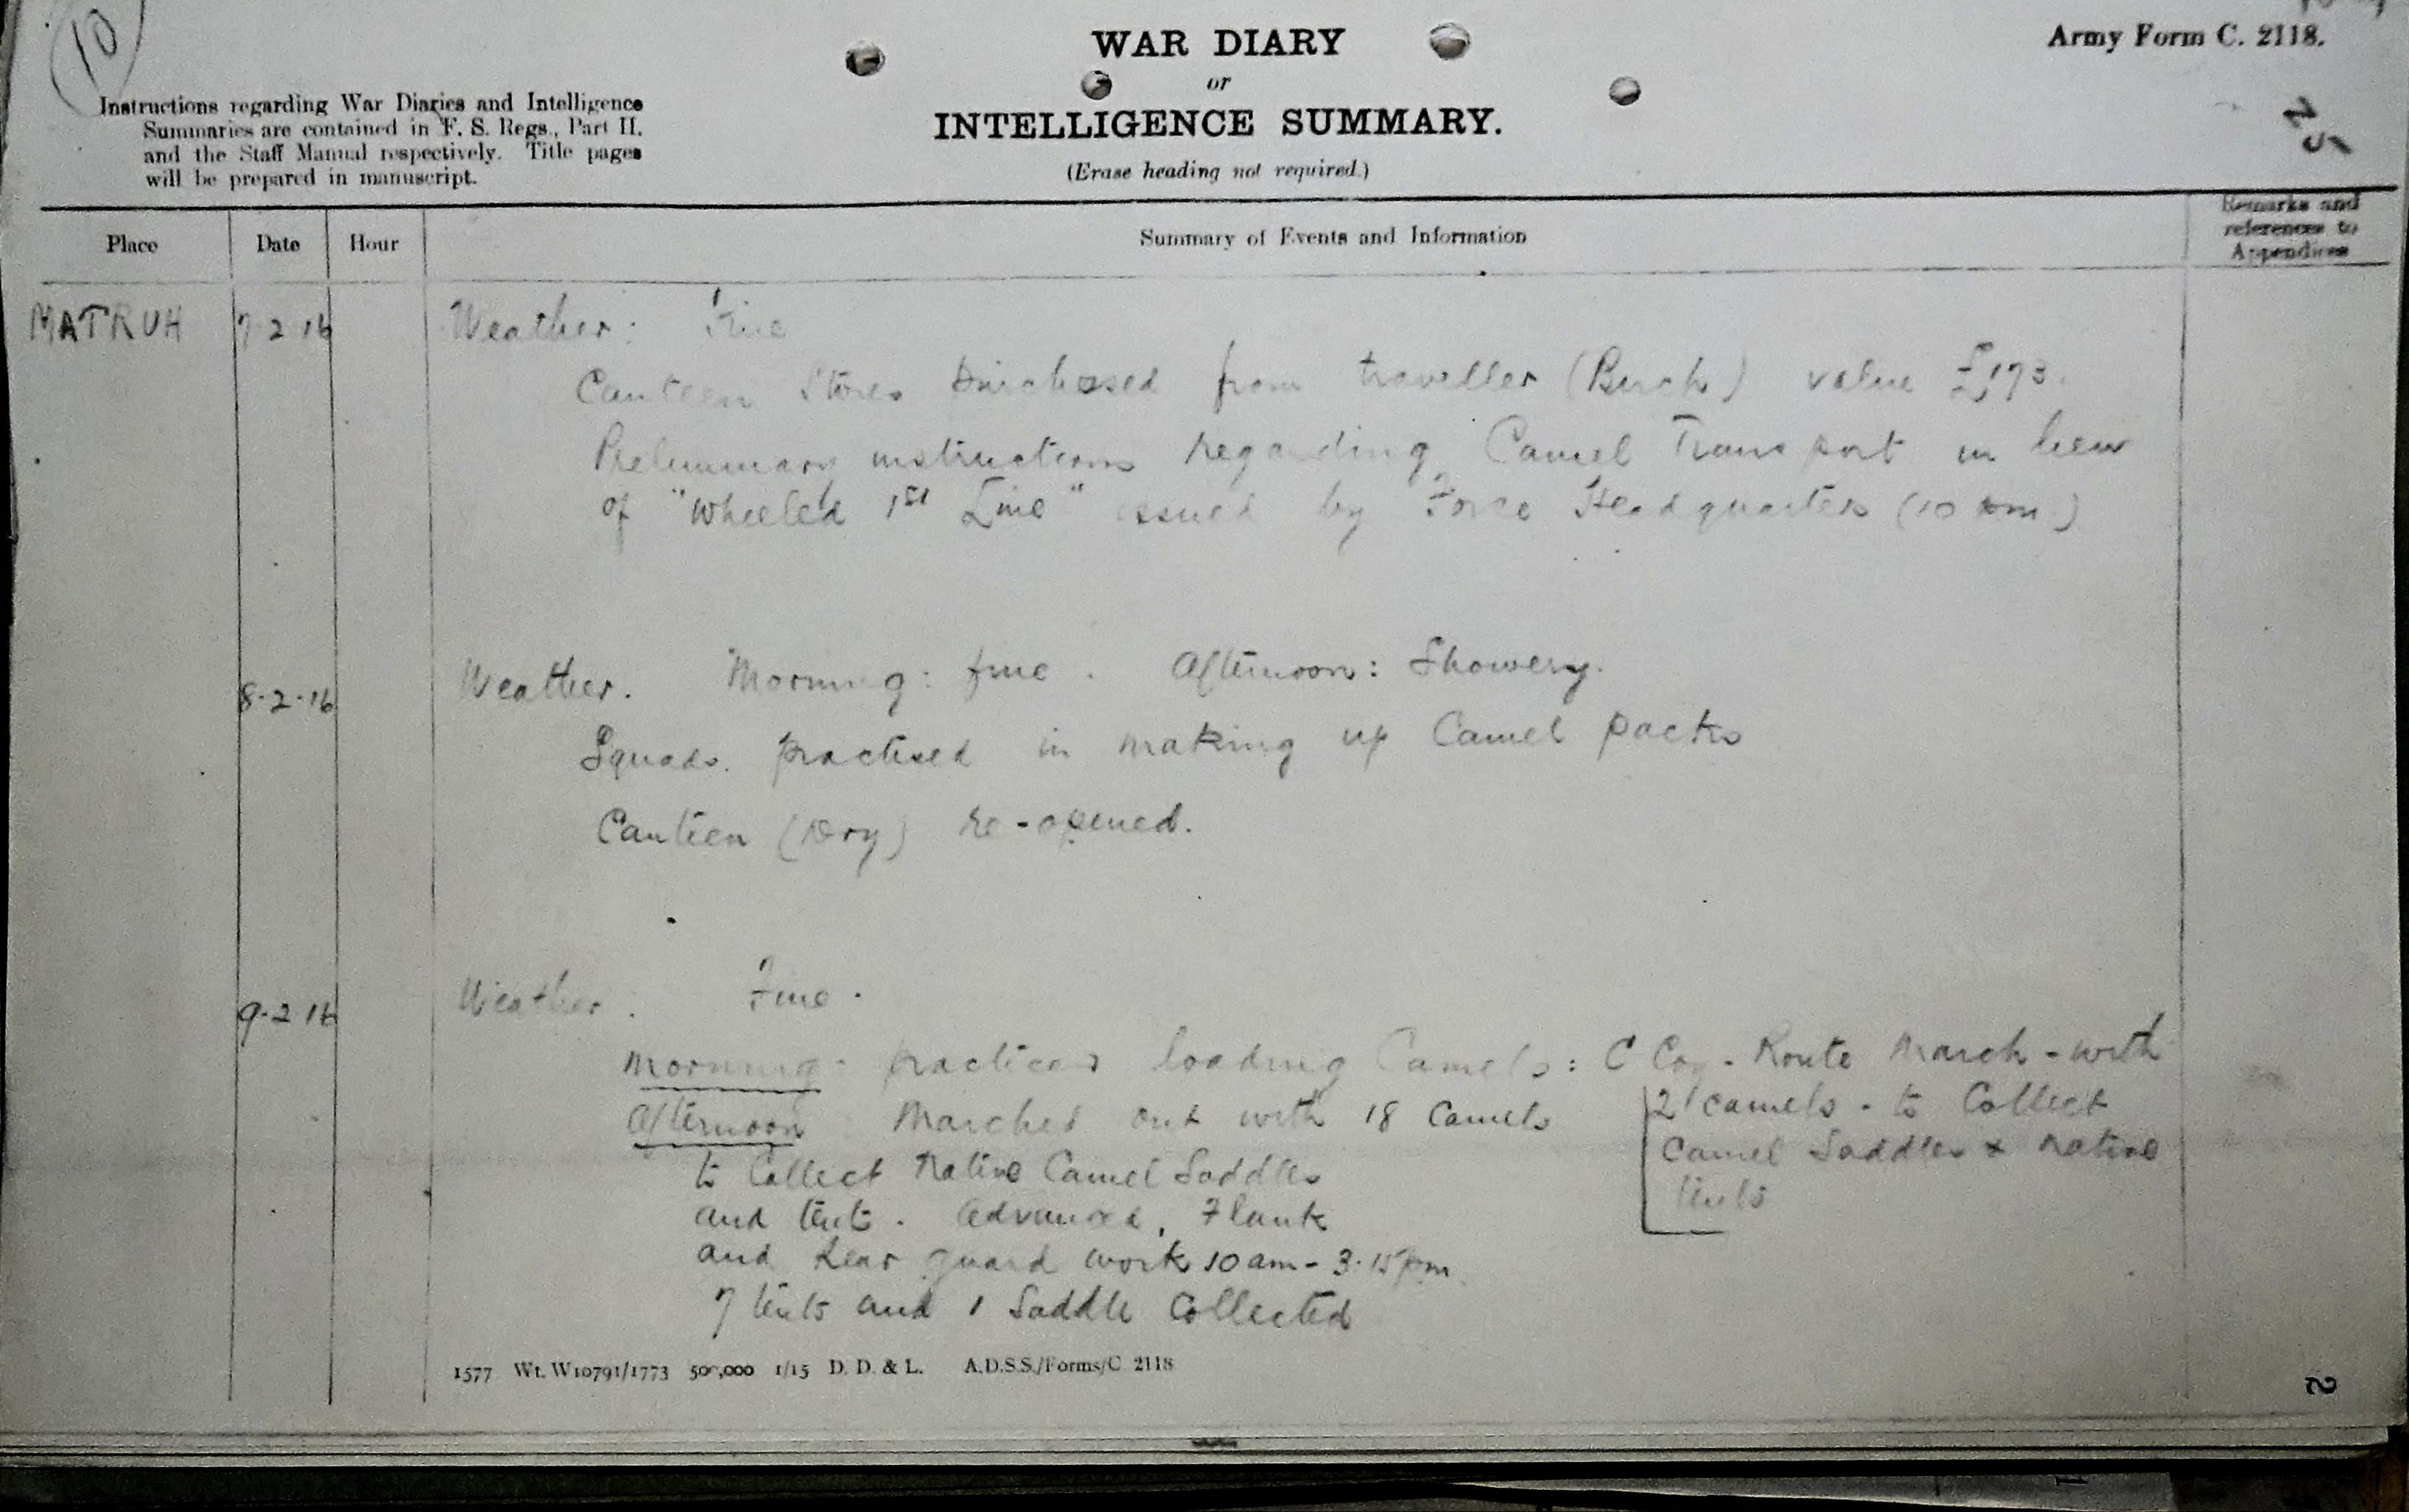 10
WAR DIARY
or
INTELLIGENCE SUMMARY.
(Erase heading not required.)
Army Form C. 2118.
25
Instructions regarding War Diaries and Intelligence
Summaries are contained in F. S. Regs., Part II.
and the Staff Manual respectively. Title pages
will be prepared in manuscript.
Place Date Hour Summary of Events and Information Remarks and references to Appendices
MATRUH 7 2 16 Weather: Fine
Canteen Stores purchased from traveller (Birch) value £173.
Preliminary instructions regarding Camel Transport in lieu
of "Wheeled 1st Line" issued by Force Headquarters (10 pm)
8-2-16 Weather. Morning: fine. Afternoon: Showery.
Squads. practised in making up Camel packs
Canteen (Dry) re-opened.
9-2 16 Weather: Fine.
Morning: practices loading Camels: C Coy - Route March - with
21 camels - to Collect
Camel Saddles & Native
tents
Afternoon: Marched out with 18 Camels
to Collect Native Camel Saddles
and tents. Advanced, Flank
and Rear guard work 10 am - 3.15 pm.
7 tents and 1 Saddle Collected
1577 Wt. W10791/1773 500,000 1/15 D. D. & L. A.D.S.S./Forms/C. 2118
2